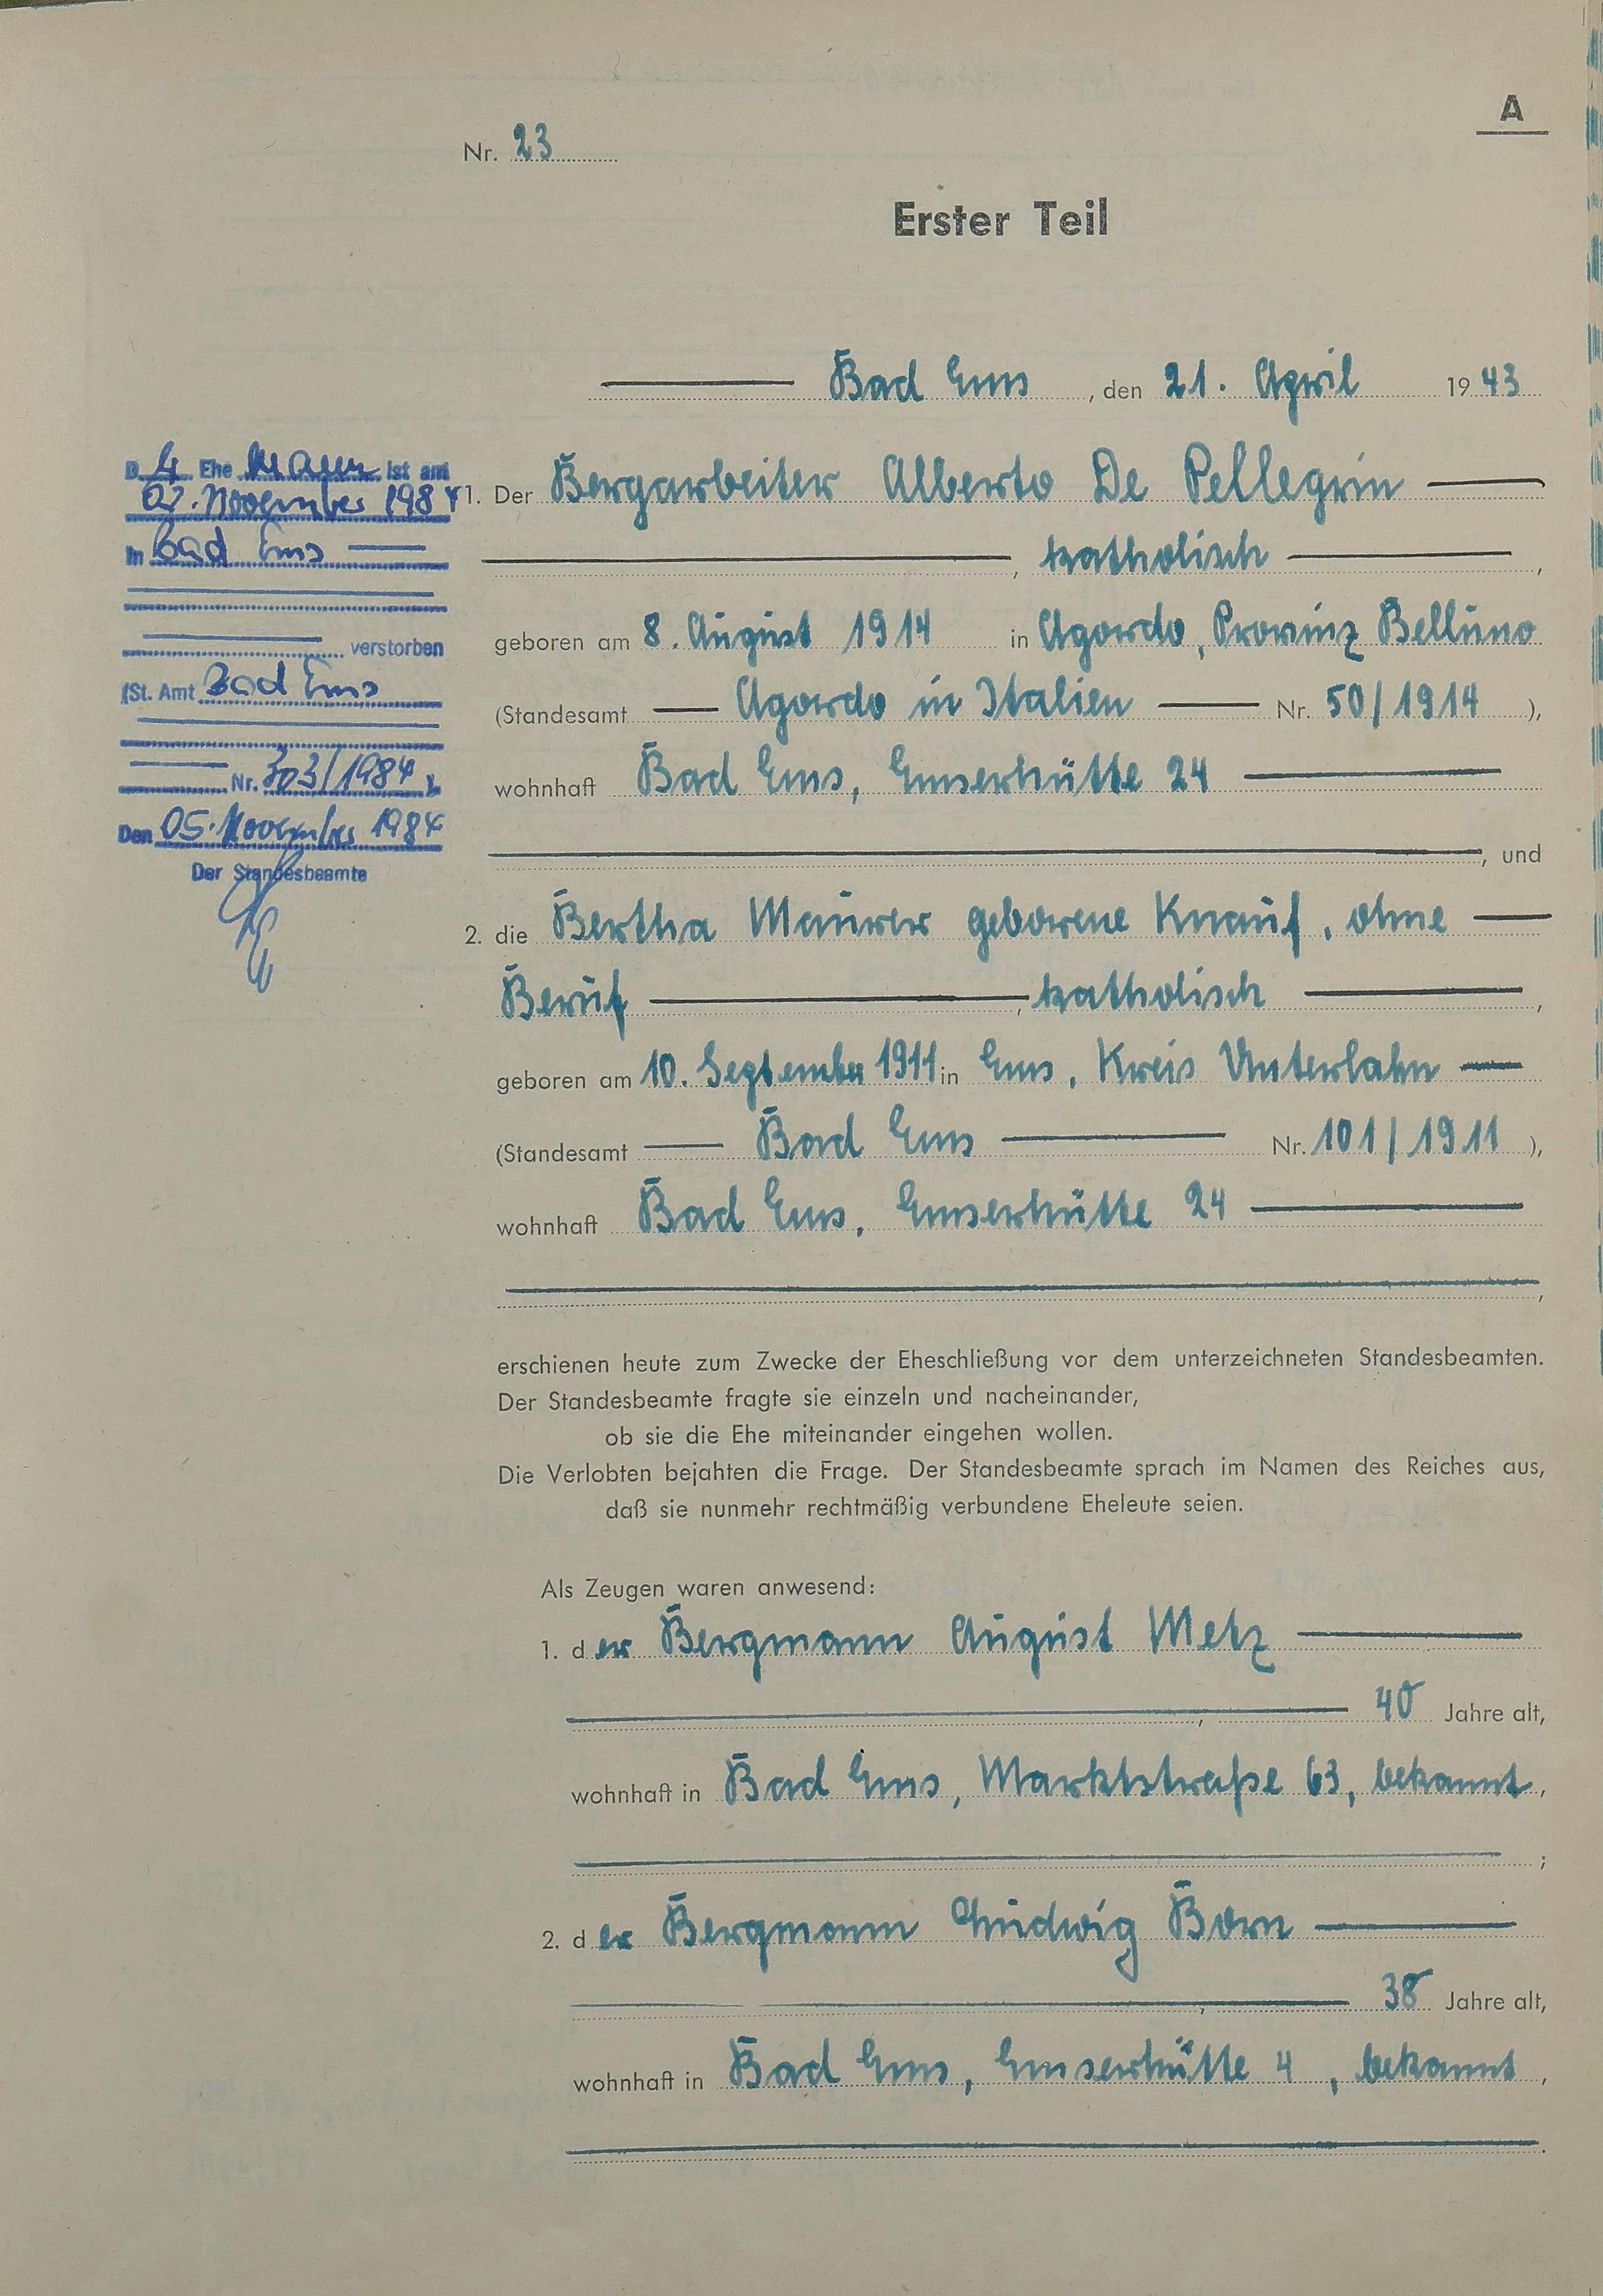 A
Nr. 23
Erster Teil
Bad Ems, den 21. April 1943
D er Ehe Mann ist am
02. November 1984
in Bad Ems
verstorben
(St. Amt Bad Ems
Nr. 303/1984 )
Den 05. November 1984
Der Standesbeamte
1. Der Bergarbeiter Alberto De Pellegrin
, katholisch ,
geboren am 8. August 1914 in Agordo, Provinz Belluno
(Standesamt Agordo in Italien Nr. 50/1914 ),
wohnhaft Bad Ems, Emserhütte 24
, und
2. die Bertha Maurer geborene Knauf, ohne
Beruf , katholisch ,
geboren am 10. September 1911 in Ems, Kreis Unterlahn
(Standesamt Bad Ems Nr. 101/1911 ),
wohnhaft Bad Ems, Emserhütte 24
,
erschienen heute zum Zwecke der Eheschließung vor dem unterzeichneten Standesbeamten.
Der Standesbeamte fragte sie einzeln und nacheinander,
ob sie die Ehe miteinander eingehen wollen.
Die Verlobten bejahten die Frage. Der Standesbeamte sprach im Namen des Reiches aus,
daß sie nunmehr rechtmäßig verbundene Eheleute seien.
Als Zeugen waren anwesend:
1. d er Bergmann August Metz
, 40 Jahre alt,
wohnhaft in Bad Ems, Marktstraße 63, bekannt,
;
2. d er Bergmann Ludwig Born
, 38 Jahre alt,
wohnhaft in Bad Ems, Emserhütte 4, bekannt,
.